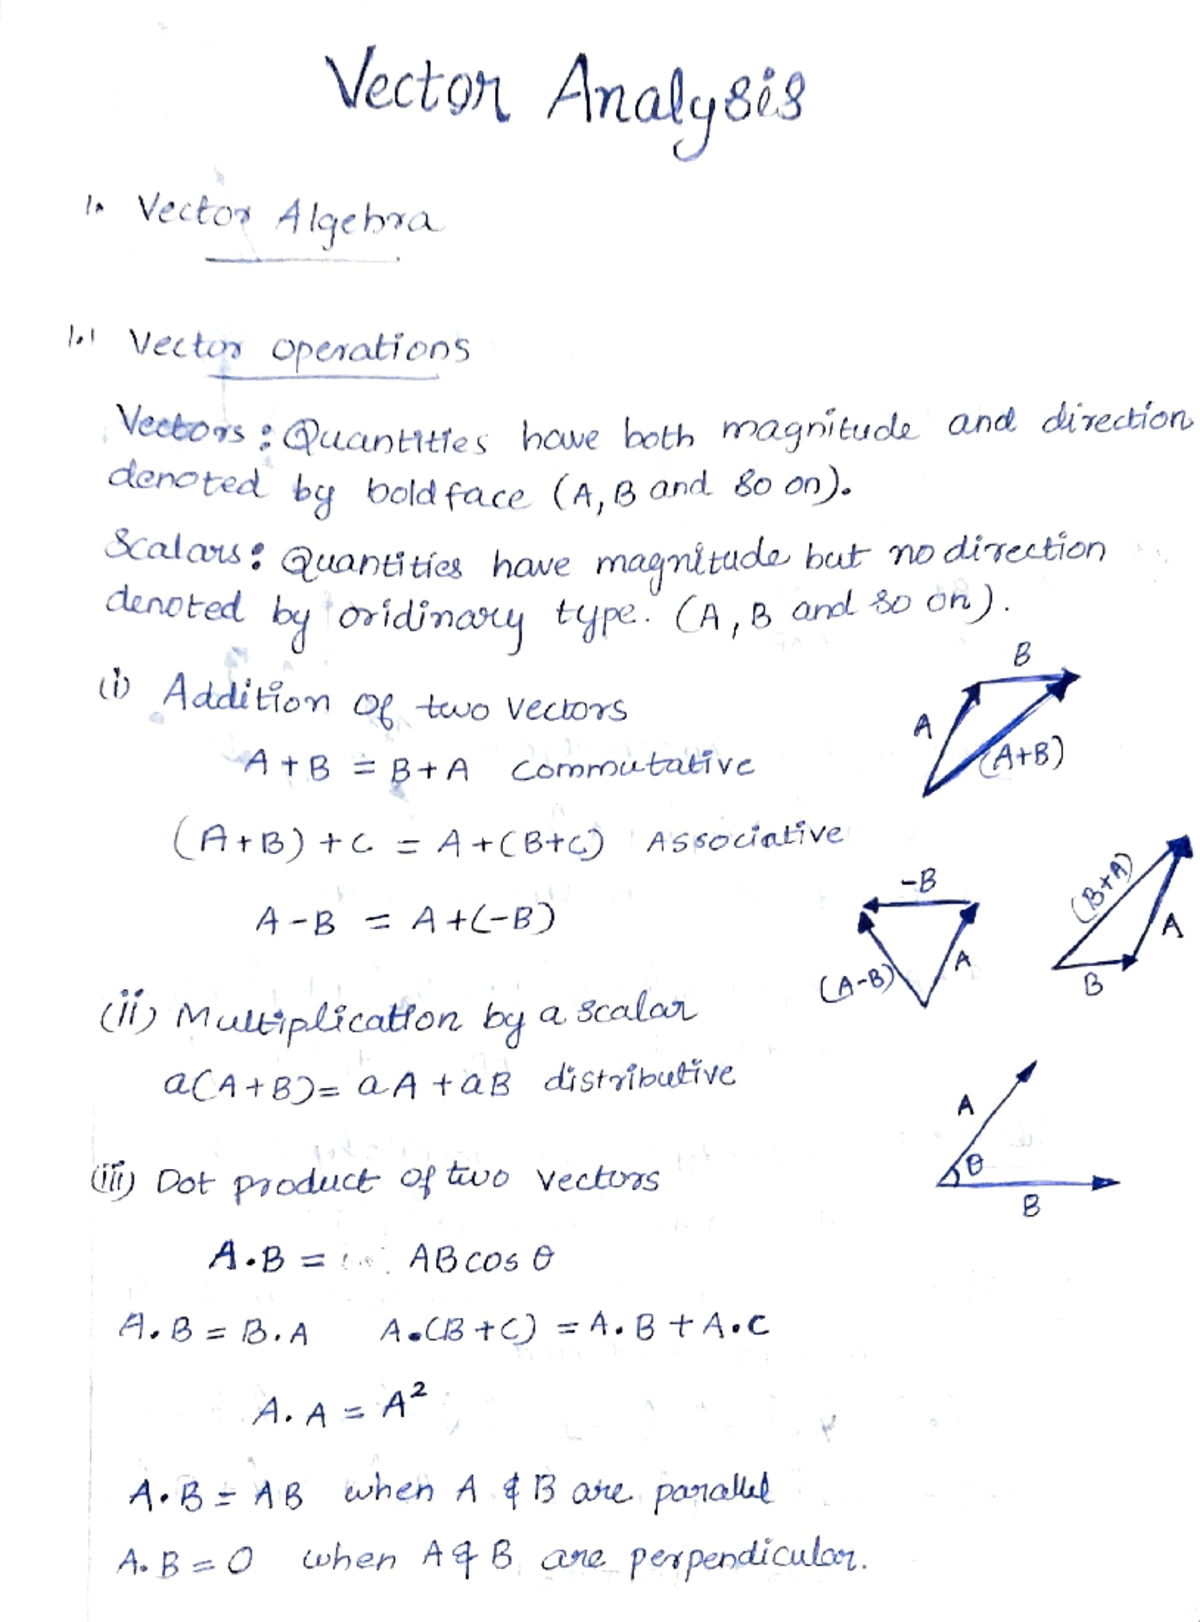 Vector Analysis
1. Vector Algebra
1.1 Vector operations
Vectors: Quantities have both magnitude and direction
denoted by boldface (A, B and so on).
Scalars: Quantities have magnitude but no direction
denoted by oridinary type. (A, B and so on).
(i) Addition of two vectors
B
A
(A+B)
A+B = B+A commutative
(A+B)+C = A+(B+C) Associative
A-B = A+(-B)
-B
(A-B)
A
(B+A)
A
B
(ii) Multiplication by a scalar
a(A+B)= aA+aB distributive
A
θ
B
(iii) Dot product of two vectors
A.B = ABcos θ
A.B = B.A A.(B+C) = A.B+A.C
A.A = A²
A.B = AB when A & B are parallel
A.B = 0 when A & B are perpendicular.